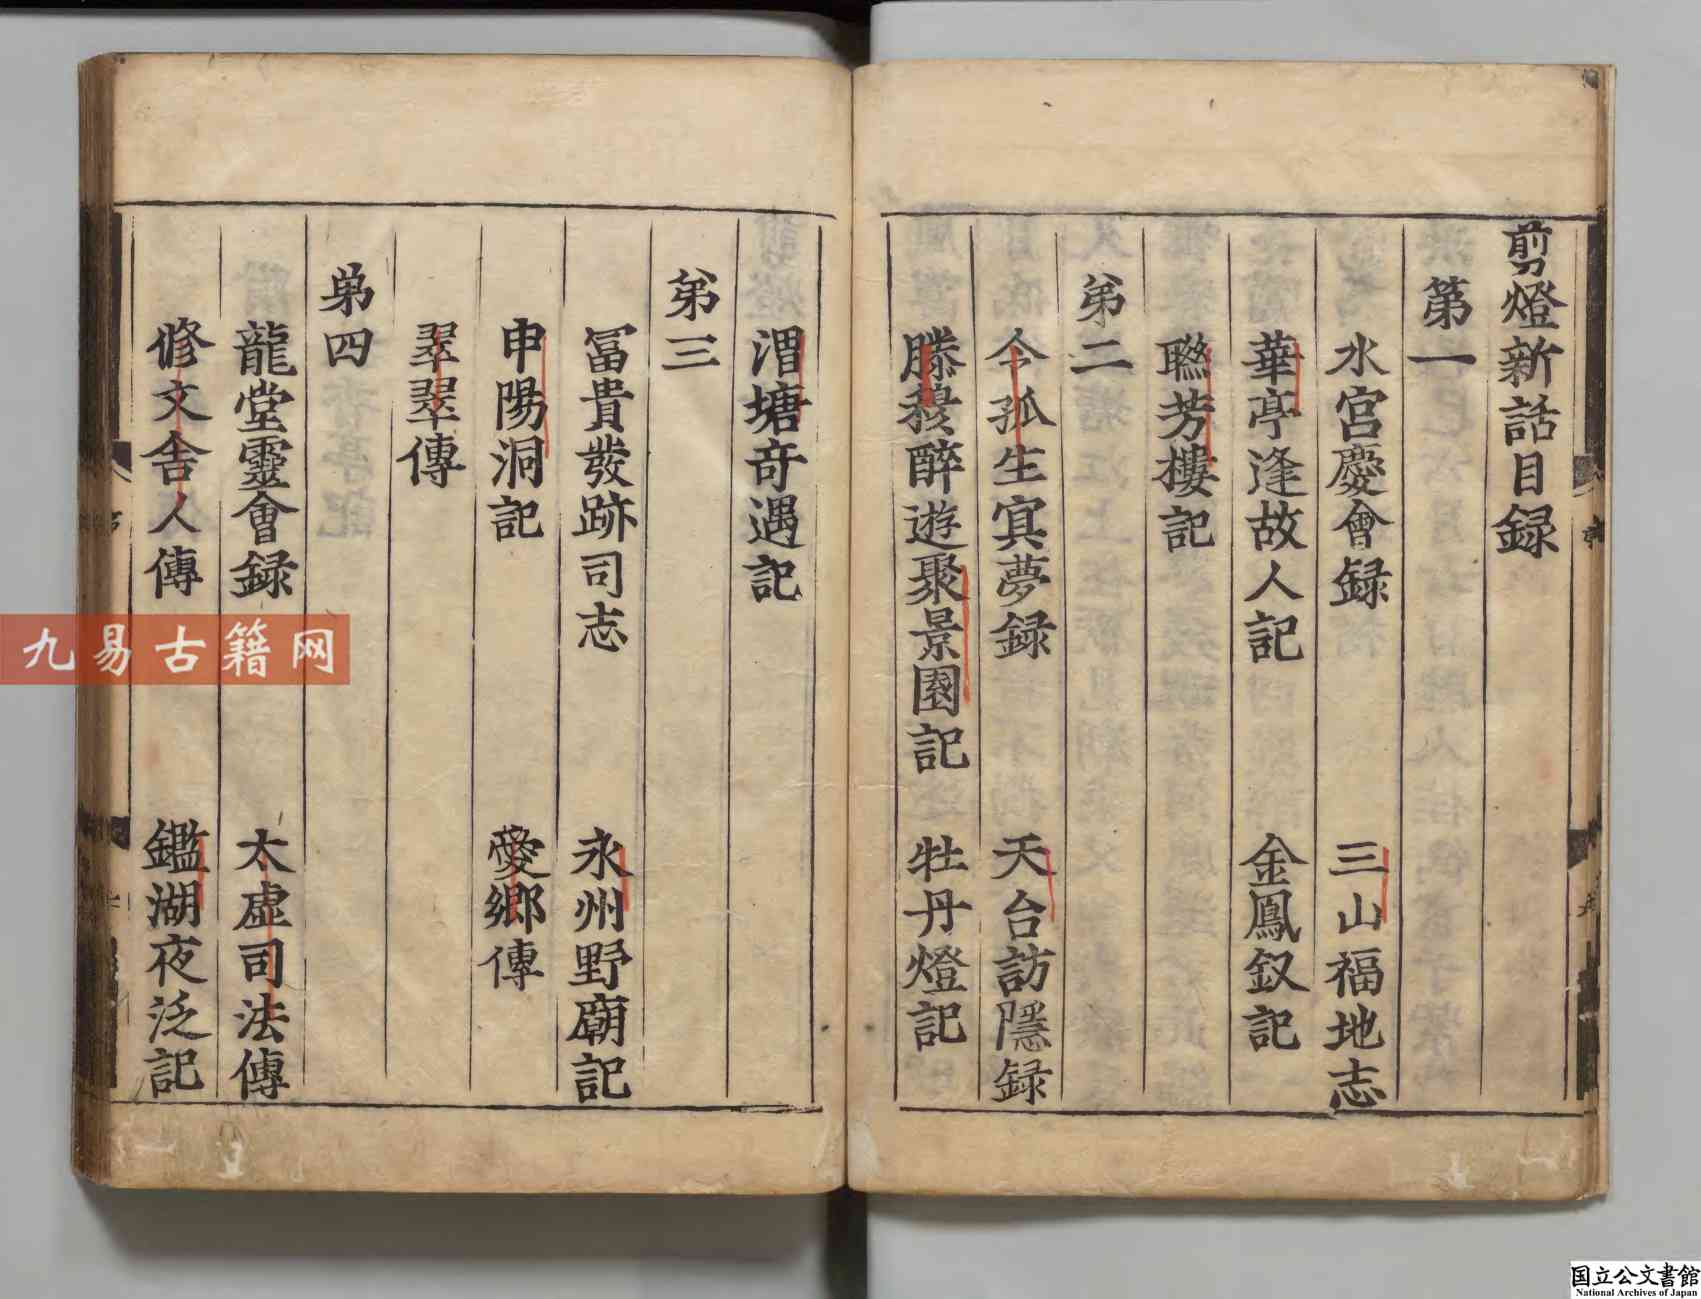 剪燈新話目録
第一
水宮慶會録 三山福地志
華亭逢故人記 金鳳釵記
聮芳樓記
苐二
令孤生冥夢録 天台訪隱録
滕穆醉遊聚景園記 牡丹燈記
渭塘竒遇記
苐三
冨貴發跡司志 永州野廟記
申陽洞記 愛鄉傳
翠翠傳
苐四
龍堂靈會録 太虛司法傳
修文舎人傳 鑑湖夜泛記
九易古籍网
国立公文書館
National Archives of Japan